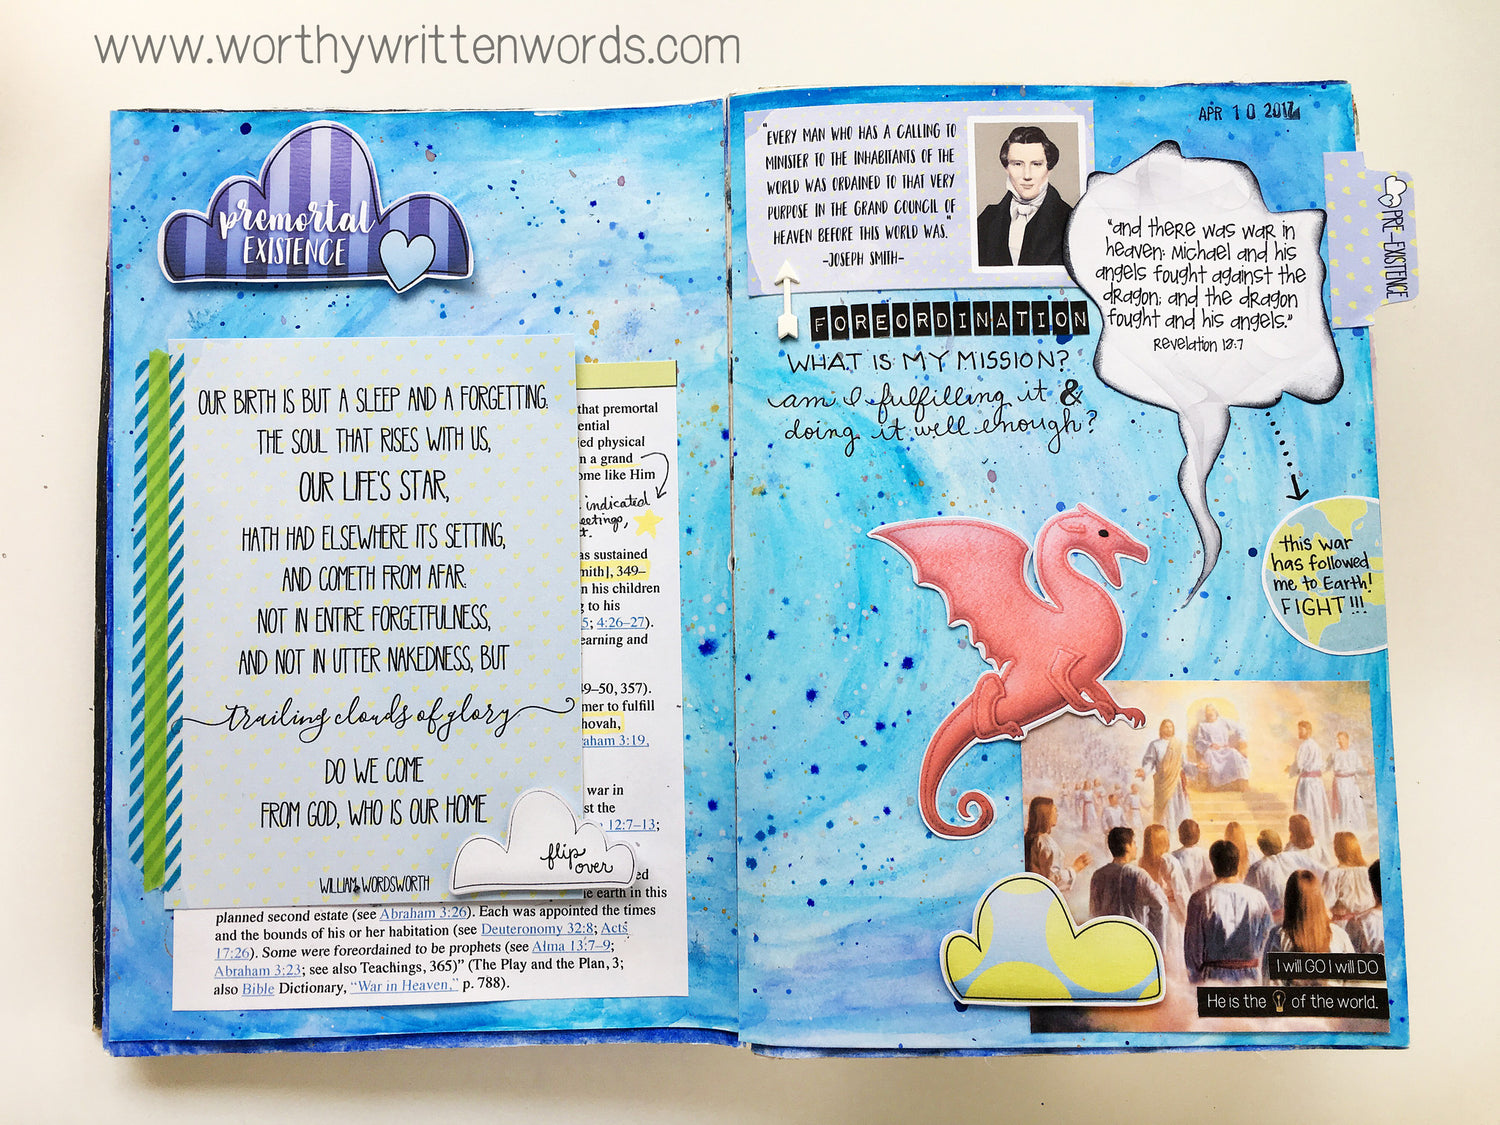 www.worthywrittenwords.com
premortal
EXISTENCE
OUR BIRTH IS BUT A SLEEP AND A FORGETTING:
THE SOUL THAT RISES WITH US,
OUR LIFE'S STAR,
HATH HAD ELSEWHERE ITS SETTING,
AND COMETH FROM AFAR:
NOT IN ENTIRE FORGETFULNESS,
AND NOT IN UTTER NAKEDNESS, BUT
trailing clouds of glory
DO WE COME
FROM GOD, WHO IS OUR HOME
WILLIAM WORDSWORTH
flip
over
that premortal
ential
ed physical
n a grand
ome like Him
indicated
eetings,
t.
as sustained
mith], 349–
n his children
g to his
5; 4:26–27).
earning and
49–50, 357).
mer to fulfill
hovah,
raham 3:19,
war in
st the
e 12:7–13;
ed
e earth in this
planned second estate (see Abraham 3:26). Each was appointed the times
and the bounds of his or her habitation (see Deuteronomy 32:8; Acts
17:26). Some were foreordained to be prophets (see Alma 13:7–9;
Abraham 3:23; see also Teachings, 365)” (The Play and the Plan, 3;
also Bible Dictionary, “War in Heaven,” p. 788).
"EVERY MAN WHO HAS A CALLING TO
MINISTER TO THE INHABITANTS OF THE
WORLD WAS ORDAINED TO THAT VERY
PURPOSE IN THE GRAND COUNCIL OF
HEAVEN BEFORE THIS WORLD WAS."
-JOSEPH SMITH-
APR 10 2017
FOREORDINATION
WHAT IS MY MISSION?
am I fulfilling it &
doing it well enough?
"and there was war in
heaven: Michael and his
angels fought against the
dragon; and the dragon
fought and his angels."
Revelation 12:7
PRE-EXISTENCE
this war
has followed
me to Earth!
FIGHT!!!
I will GO I will DO
He is the of the world.